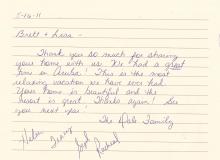 5-16-11
Brett + Lisa -
Thank you so much for sharing
your home with us. We had a great
time in Aruba! This is the most
relaxing vacation we have ever had.
Your home is beautiful and the
resort is great. Thanks again! See
you next year!
The Dals Family
Helen Joel Racheal